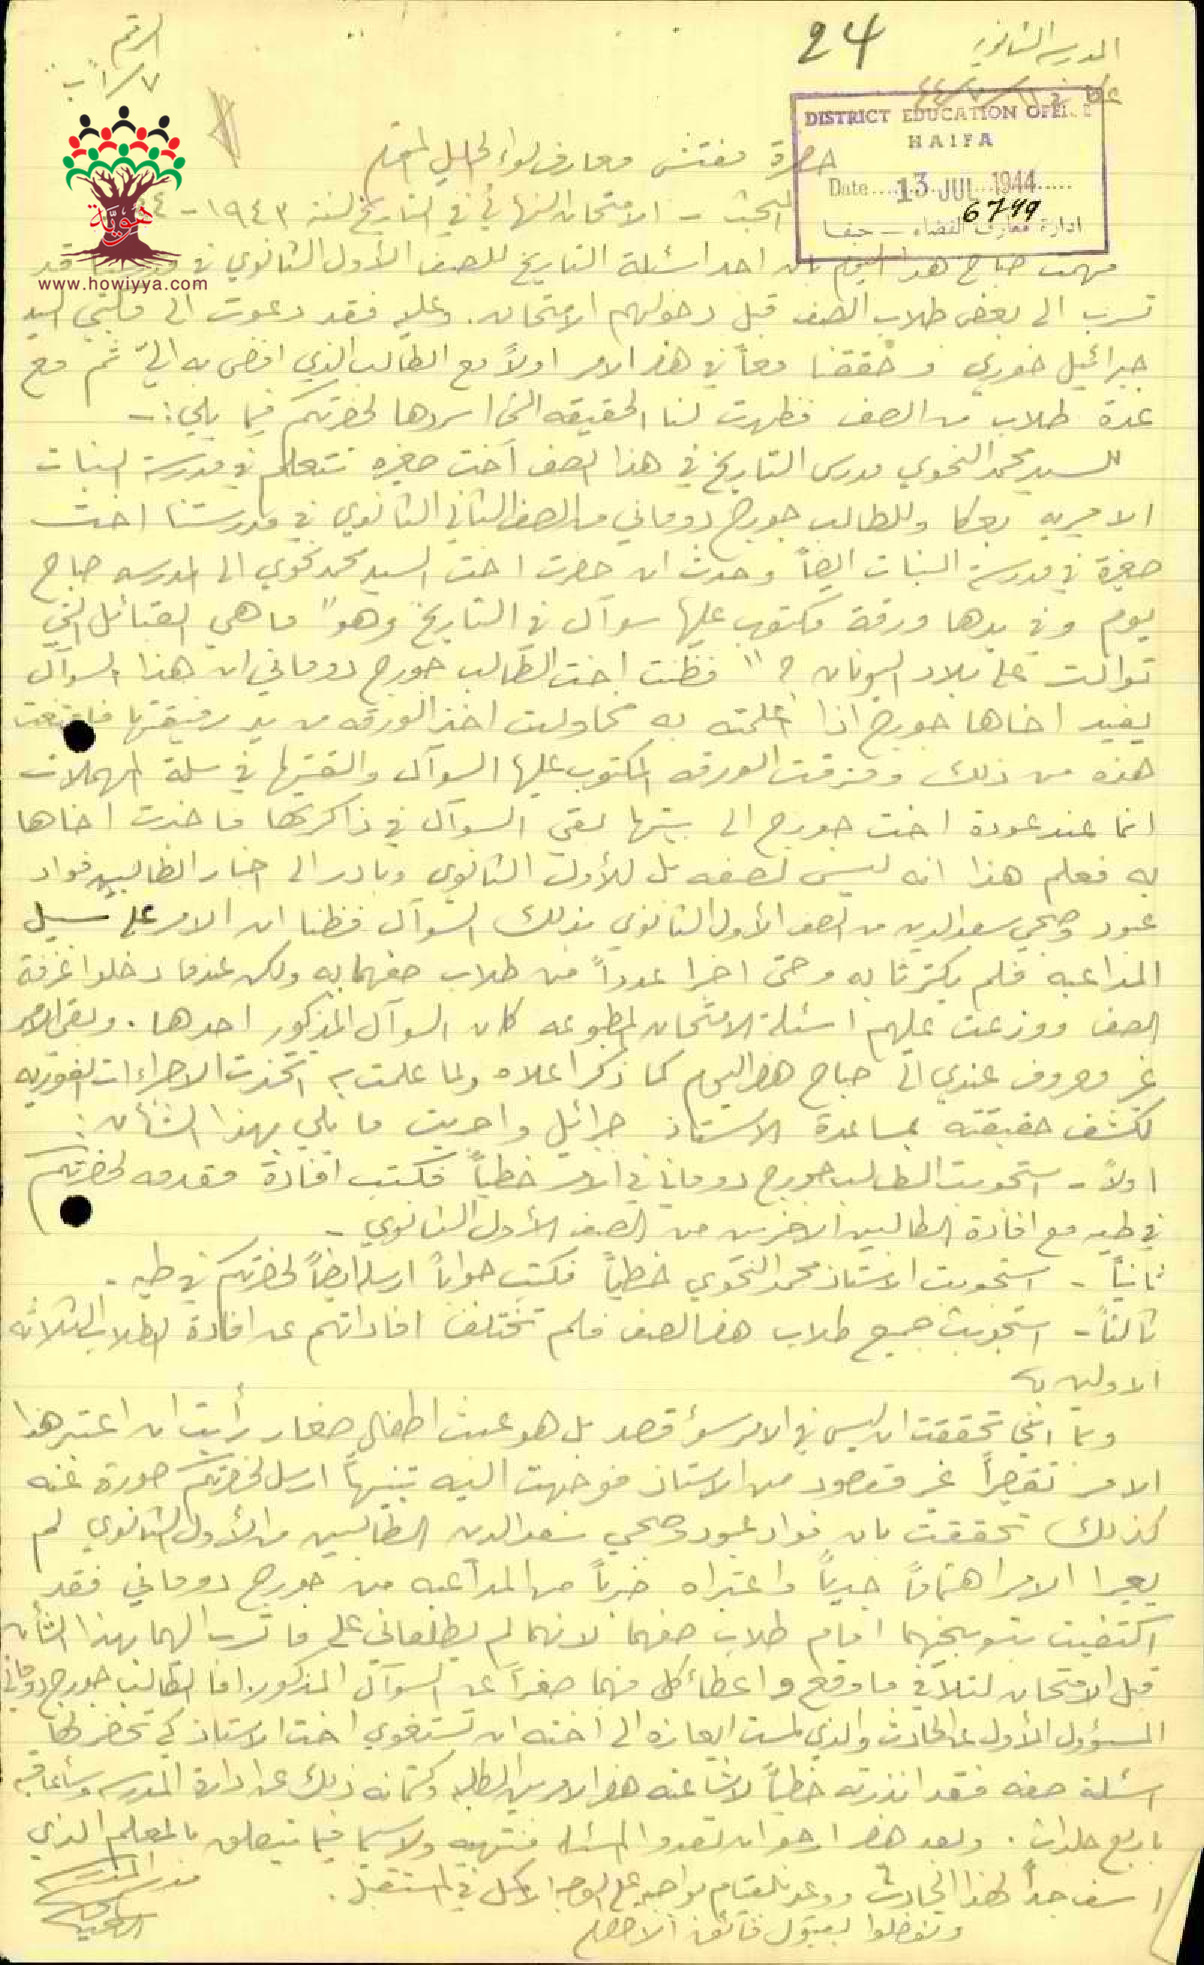 المدرسة الثانوية
عكا في ١١/٧/٤٤
24
الرقم
٧/١/ب
DISTRICT EDUCATION OFFICE
HAIFA
Date 13 JUL 1944
6799
ادارة معارف القضاء - حيفا
هويّة
www.howiyya.com
حضرة مفتش معارف لواء الجليل المحترم
البحث - الامتحان النهائي في التاريخ لسنة ١٩٤٣ -
فهمت صباح هذا اليوم بان احد اسئلة التاريخ للصف الأول الثانوي في مدرستنا قد
تسرب الى بعض طلاب الصف قبل دخولهم الامتحان. وعليه فقد دعوت الى مكتبي السيد
جبرائيل خوري وحققنا معاً في هذا الامر اولاً مع الطالب الذي افضى به اليّ ثم مع
عدة طلاب من الصف فظهرت لنا الحقيقه التي اسردها لحضرتكم فيما يلي:-
للسيد محمد النحوي مدرس التاريخ في هذا الصف أخت صغيره تتعلم في مدرسة البنات
الاميريه بعكا وللطالب جورج دوماني من الصف الثاني الثانوي في مدرستنا اخت
صغيرة في مدرسة البنات ايضاً وحدث ان حضرت اخت السيد محمد نحوي الى المدرسه صباح
يوم وفي يدها ورقة مكتوب عليها سوآل في التاريخ وهو "ما هي القبائل التي
توالت على بلاد اليونان ؟" فظنت اخت الطالب جورج دوماني ان هذا السوآل
يفيد اخاها جورج اذا اعلمته به فحاولت اخذ الورقه من يد رفيقتها فامتنعت
هذه من ذلك ومزقت الورقه المكتوب عليها السوآل والقتها في سلة المهملات
انما عند عودة اخت جورج الى بيتها بقي السوآل في ذاكرتها فاخبرت اخاها
به فعلم هذا انه ليس لصفه بل للأول الثانوي وبادر الى اخبار الطالبين فواد
عبود وصبحي سعد الدين من الصف الأول الثانوي بذلك السوآل فظنا ان الامر على سبيل
المداعبه فلم يكترثا به وحتى اخبرا عدداً من طلاب صفهما به ولكن عندما دخلوا غرفة
الصف ووزعت عليهم اسئلة الامتحان المطبوعه كان السوآل المذكور احدها. وبقي الامر
غير معروف عندي الى صباح هذا اليوم كما ذكر اعلاه ولما علمت به اتخذت الاجراءات الفوريه
لكشف حقيقته بمساعدة الاستاذ جبرائيل واجريت ما يلي بهذا الشأن:
اولاً - استجوبت الطالب جورج دوماني في الامر خطياً فكتب افادة مقدمه لحضرتكم
في طيه مع افادة الطالبين الاخرين من الصف الأول الثانوي -
ثانياً - استجوبت الاستاذ محمد النحوي خطياً فكتب جواباً ارسله ايضاً لحضرتكم في طيه.
ثالثاً - استجوبت جميع طلاب هذا الصف فلم تختلف افاداتهم عن افادة الطلاب الثلاثه
الاولين
وبما انني تحققت ان ليس في الامر سؤ قصد بل هو عبث اطفال صغار رأيت ان اعتبر هذا
الامر تقصيراً غير مقصود من الاستاذ فوجهت اليه تنبيهاً ارسل لحضرتكم صورة عنه
كذلك تحققت بان فواد عبود وصبحي سعد الدين الطالبين من الأول الثانوي لم
يعيرا الامر اهتماماً جدياً واعتبراه ضرباً من المداعبه من جورج دوماني فقد
اكتفيت بتوبيخهما امام طلاب صفهما لانهما لم يطلعاني على ما تسرب اليهما بهذا الشأن
قبل الامتحان لتلافي ما وقع واعطاء كل منهما صفراً عن السوآل المذكور. اما الطالب جورج دوماني
المسؤول الأول عن الحادث والذي لمست ايعازه الى اخته ان تستغوي اخت الاستاذ كي تحضر لها
اسئلة صفه فقد انذرته خطياً لاشاعته هذا الامر بين الطلبه وكتمانه ذلك عن ادارة المدرسه وسأعاقبه
باربع جلدات. وبعد هذا ارجو ان تعدوا المسئله منتهيه ولا سيما فيما يتعلق بالمعلم الذي
اسف جداً لهذا الحادث ووعد بالقيام بواجبه على الوجه الاكمل في المستقبل.
وتفضلوا بقبول فائق الاحترام
مدير المدرسه